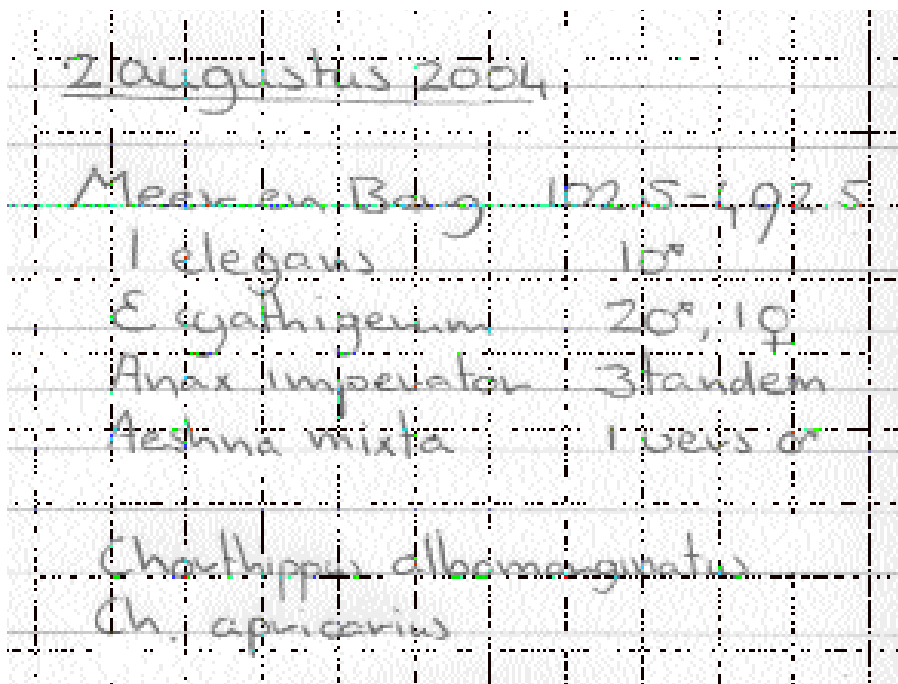 2 augustus 2004
Meer en Berg 102.5-492.5
I elegans 1♂
E cyathigerum 2♂, 1♀
Anax imperator 3 tandem
Aeshna mixta 1 vers ♂
Chorthippus albomarginatus
Ch. apricarius